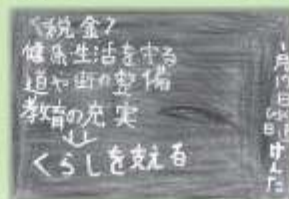 〈税金〉
健康生活を守る
道や街の整備
教育の充実
くらしを支える
けんた